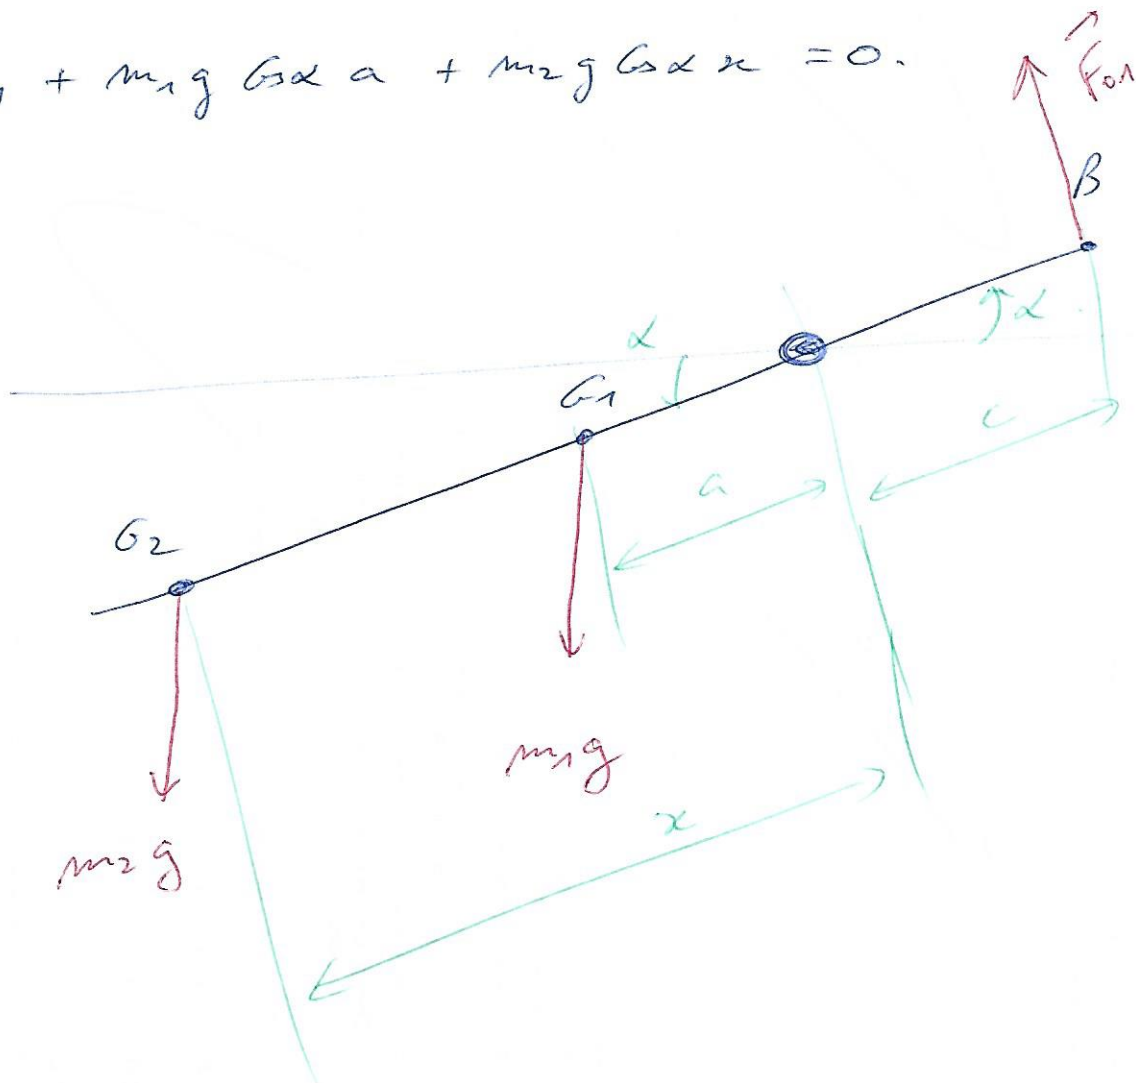 + m₁g Cosα a + m₂g Cosα x = 0.
F₀₁
B
α
α
G₁
c
a
G₂
m₁g
x
m₂g